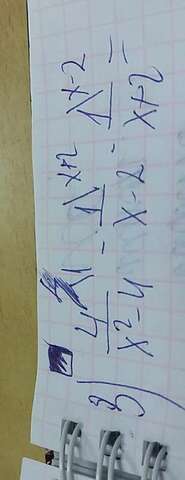 3) 4\1/x²-4 - 1\x+2/x-2 - 1\x-2/x+2 =